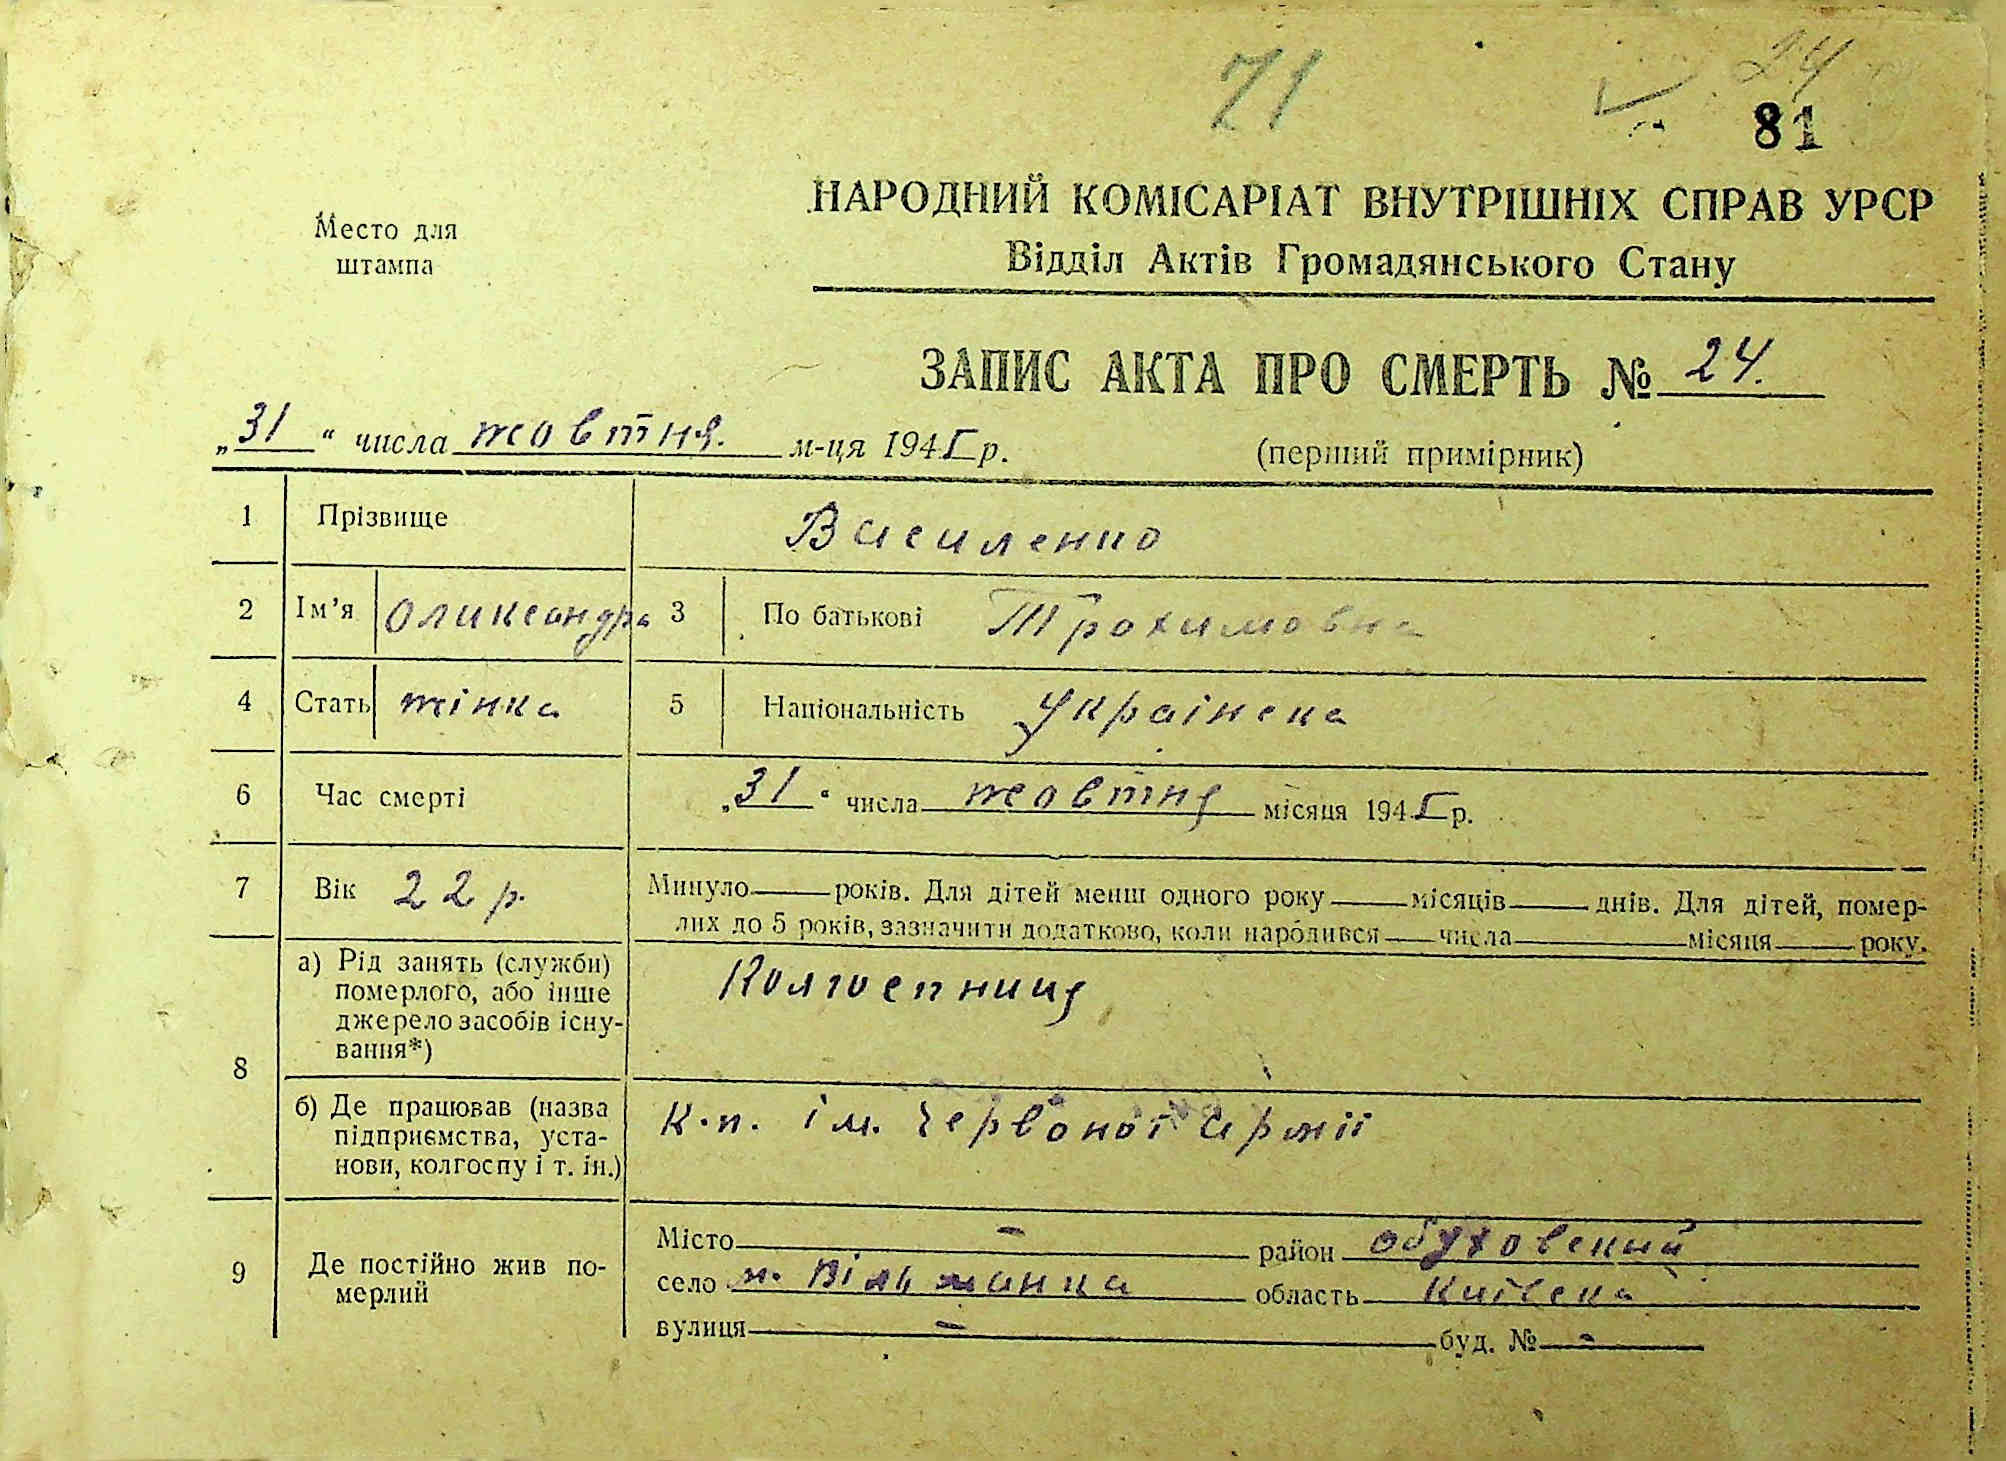 71
24
81
Место для
штампа
НАРОДНИЙ КОМІСАРІАТ ВНУТРІШНІХ СПРАВ УРСР
Відділ Актів Громадянського Стану
ЗАПИС АКТА ПРО СМЕРТЬ № 24.
„31“ числа жовтня. м-ця 1945 р.
(перший примірник)
1 Прізвище Василенко
2 Ім’я Оликсандра 3 По батькові Трохимовна
4 Стать жінка 5 Національність Українска
6 Час смерті „31“ числа жовтня місяця 1945 р.
7 Вік 22 р. Минуло років. Для дітей менш одного року місяців днів. Для дітей, помер-
лих до 5 років, зазначити додатково, коли народився числа місяця року.
8 а) Рід занять (служби)
померлого, або інше
джерело засобів існу-
вання*)
Колгоспниця
б) Де працював (назва
підприємства, уста-
нови, колгоспу і т. ін.)
К-п. ім. Червоної Армії
9 Де постійно жив по-
мерлий
Місто – район Обуховский
село м. Вільшанка область Київска
вулиця – буд. № -